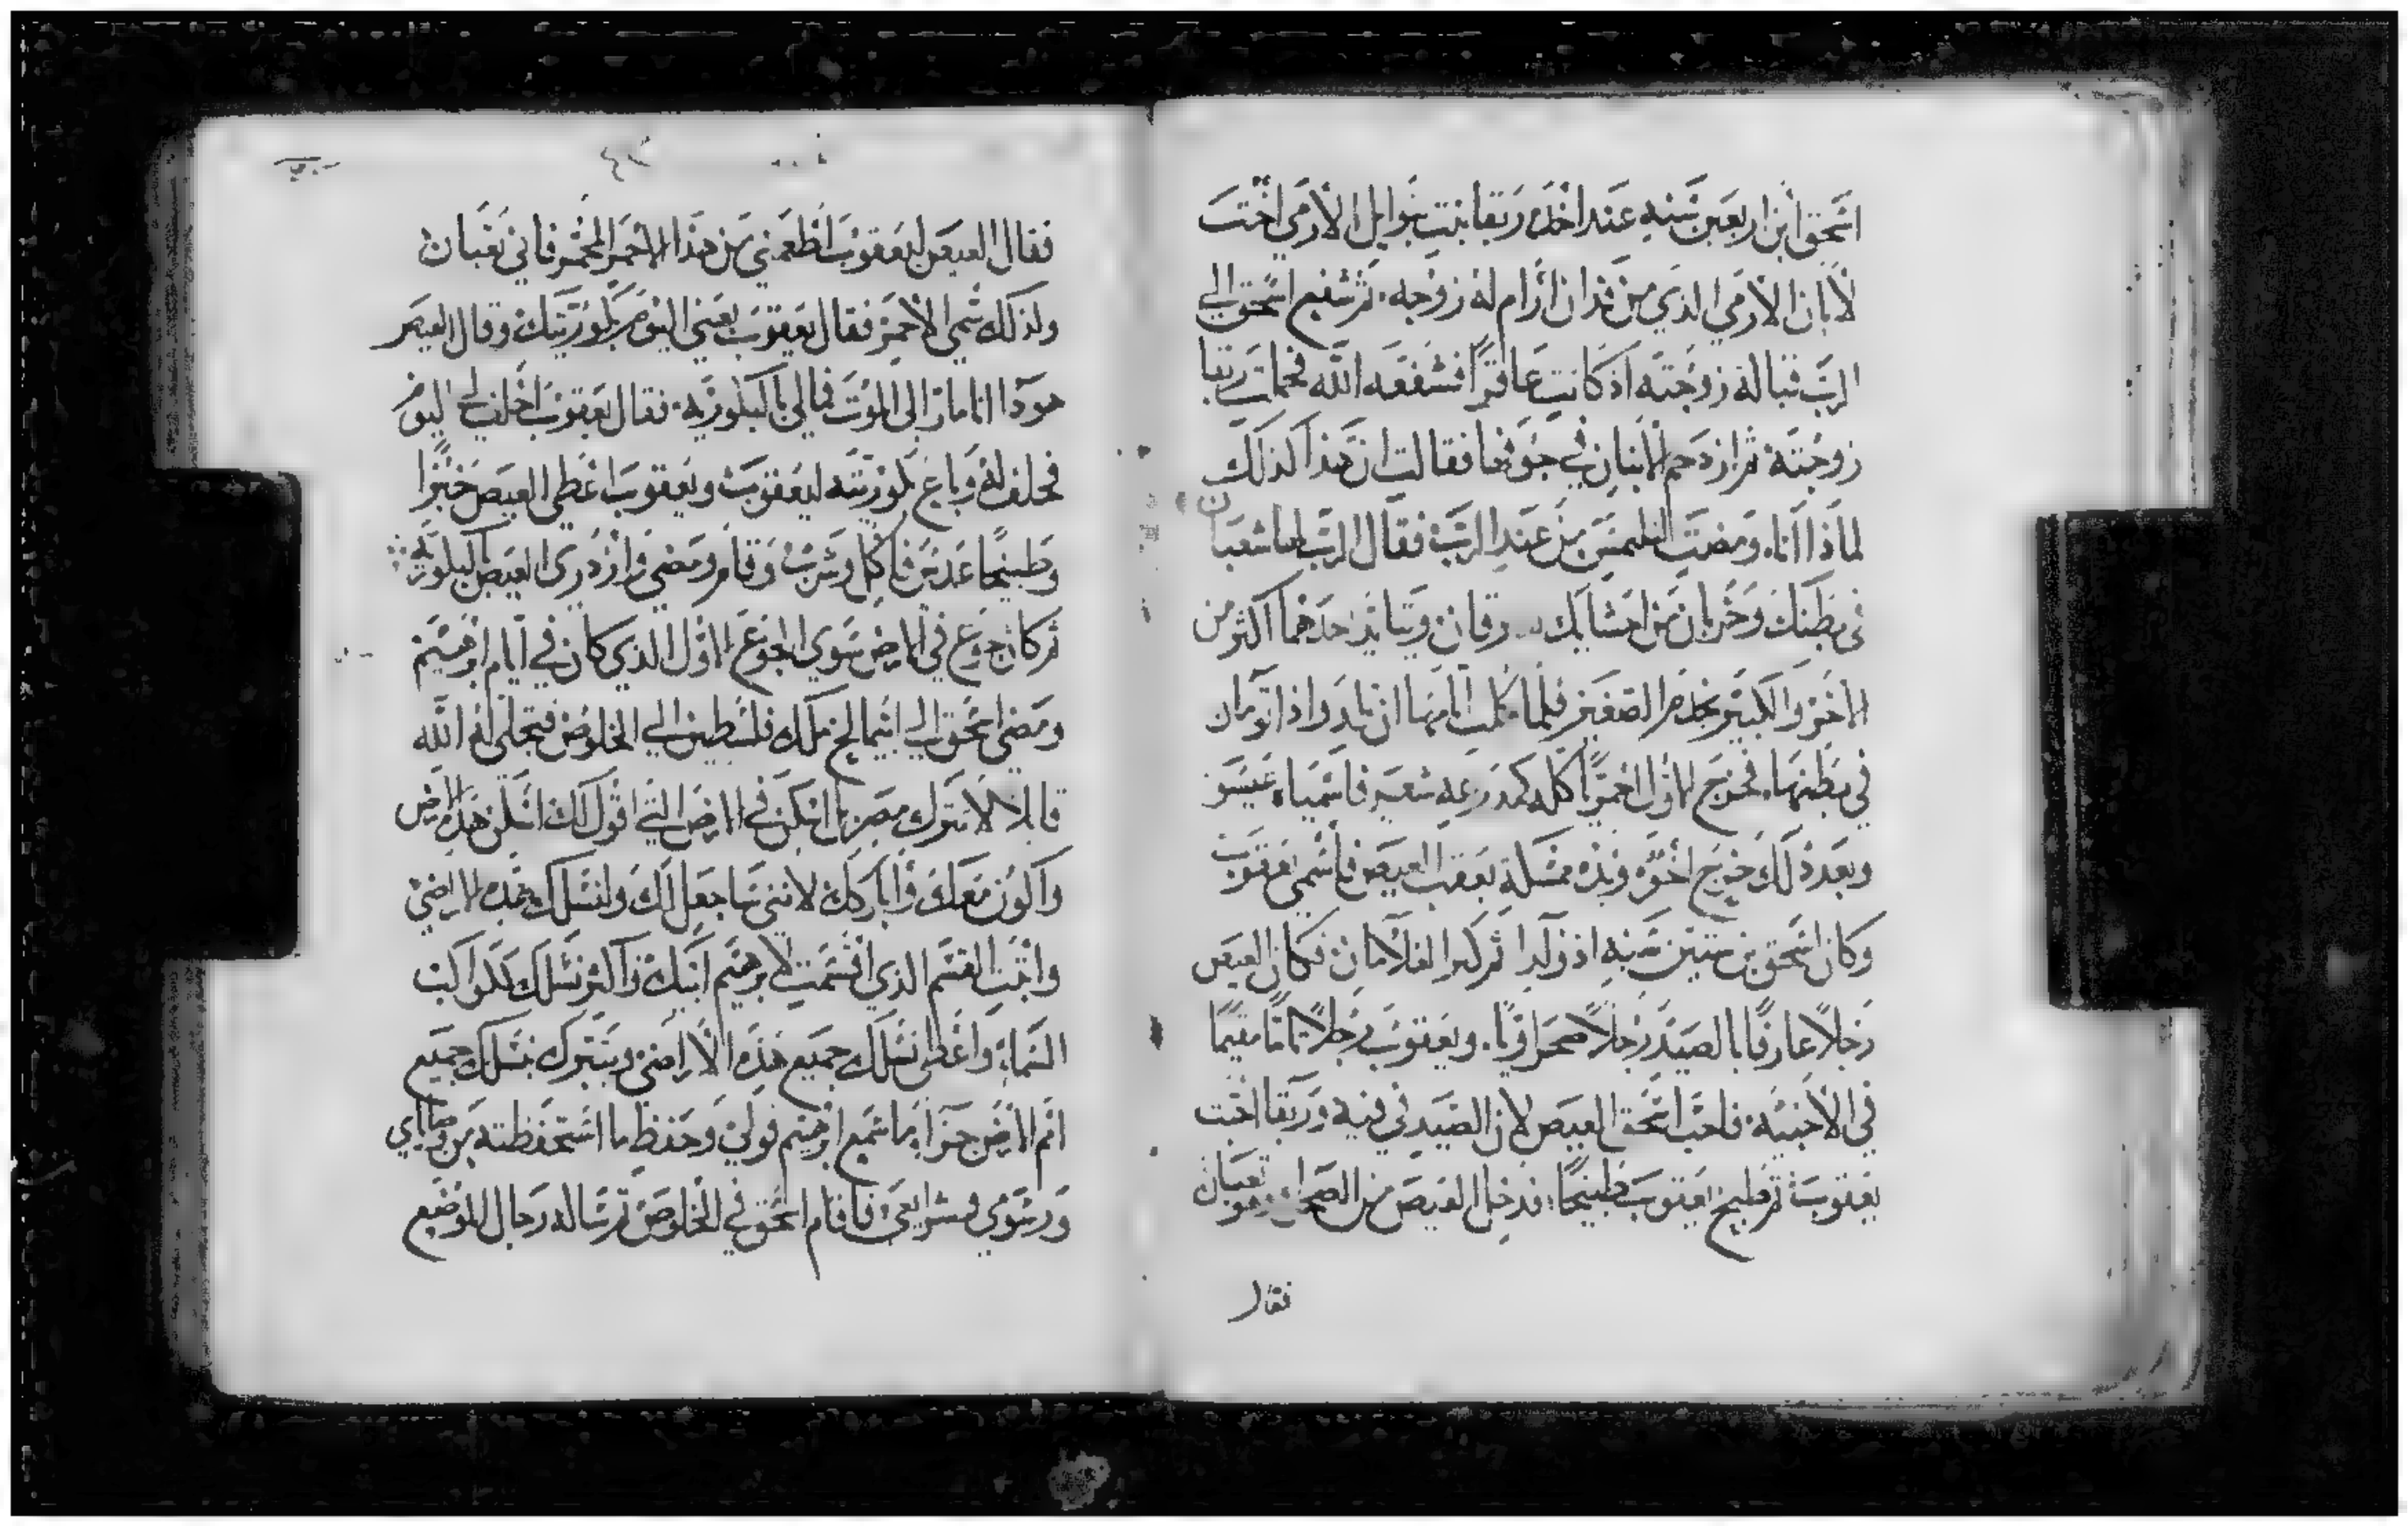 اسحق ابن اربعين سنه عند اخذه ربقا بنت بتوايل الارمي اخت
لابان الارمي الذي من فدان ارام له زوجه. ثم شفع اسحق الي
الرب قبالة زوجته اذ كانت عاقرا فشفعه الله فحملت ربقا
زوجته ثم ازدحم الابنان في جوفها فقالت ان هذا كذلك
لماذا انا. ومضت لتلتمس من عند الرب فقال الرب لها شعبان
في بطنك وحزبان من احشايك يفرقان ويتايد احدهما اكثر من
الاخر والكبير يخدم الصغير فلما كملت ايامها ان تلد واذا تومان
في بطنها. فخرج الاول احمرا كله كمدرعه شعر فاسمياه عيسو
وبعد ذلك خرج اخوه ويده ممسكة بعقب العيص فاسمي يعقوب
وكان اسحق بن ستين سنه اذ ولدا ثم كبرا الغلامان فكان العيص
رجلا عارفا بالصيد رجلا صحراويا. ويعقوب رجلا تاما مقيما
في الاخبيه فاحب اسحق العيص لان الصيد في فيه وربقا احبت
يعقوب ثم طبخ يعقوب طبيخا. فدخل العيص من الصحرا وهو تعبان
فقال
فقال العيص ليعقوب اطعمني من هذا الاحمر المحمر فاني تعبان
ولذلك سمي الاحمر فقال يعقوب بعني اليوم بكوريتك وقال العيص
هوذا انا مار الى الموت فمالي بالبكوريه. فقال يعقوب احلف لي اليوم
فحلف له وباع بكوريته ليعقوب ويعقوب اعطى العيص خبزا
وطبيخا عدس فاكل وشرب وقام ومضى وازدرى العيص بالبكوريه
ثم كان جوع في الارض سوي الجوع الاول الذي كان في ايام ابرهيم
ومضى اسحق الي ابيمالخ ملك فلسطين الي الخلوص فتجلى له الله
قايلا لا تنزل مصر بل اسكن في الارض التي اقول لك اسكن هذه الارض
واكون معك وابارك لانني ساجعل لك ولنسلك هذه الاراضي
واثبت القسم الذي اقسمت لابرهيم ابيك واكثر نسلك ككواكب
السماء واعطى نسلك جميع هذه الاراضي ويتبرك بنسلك جميع
امم الارض جزاء ما سمع ابرهيم قولي وحفظ ما استحفظته من وصاياي
ورسومي وشرايعي فاقام اسحق في الخلوص ثم ساله رجال الموضع